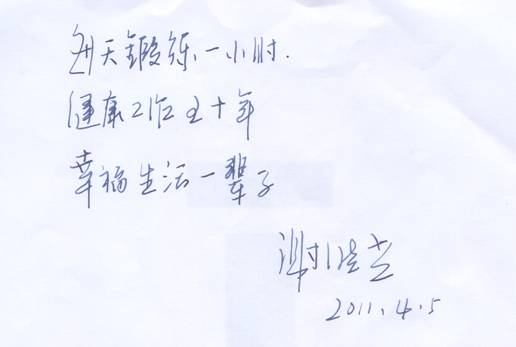 每天锻练一小时.
健康工作五十年
幸福生活一辈子
2011.4.5